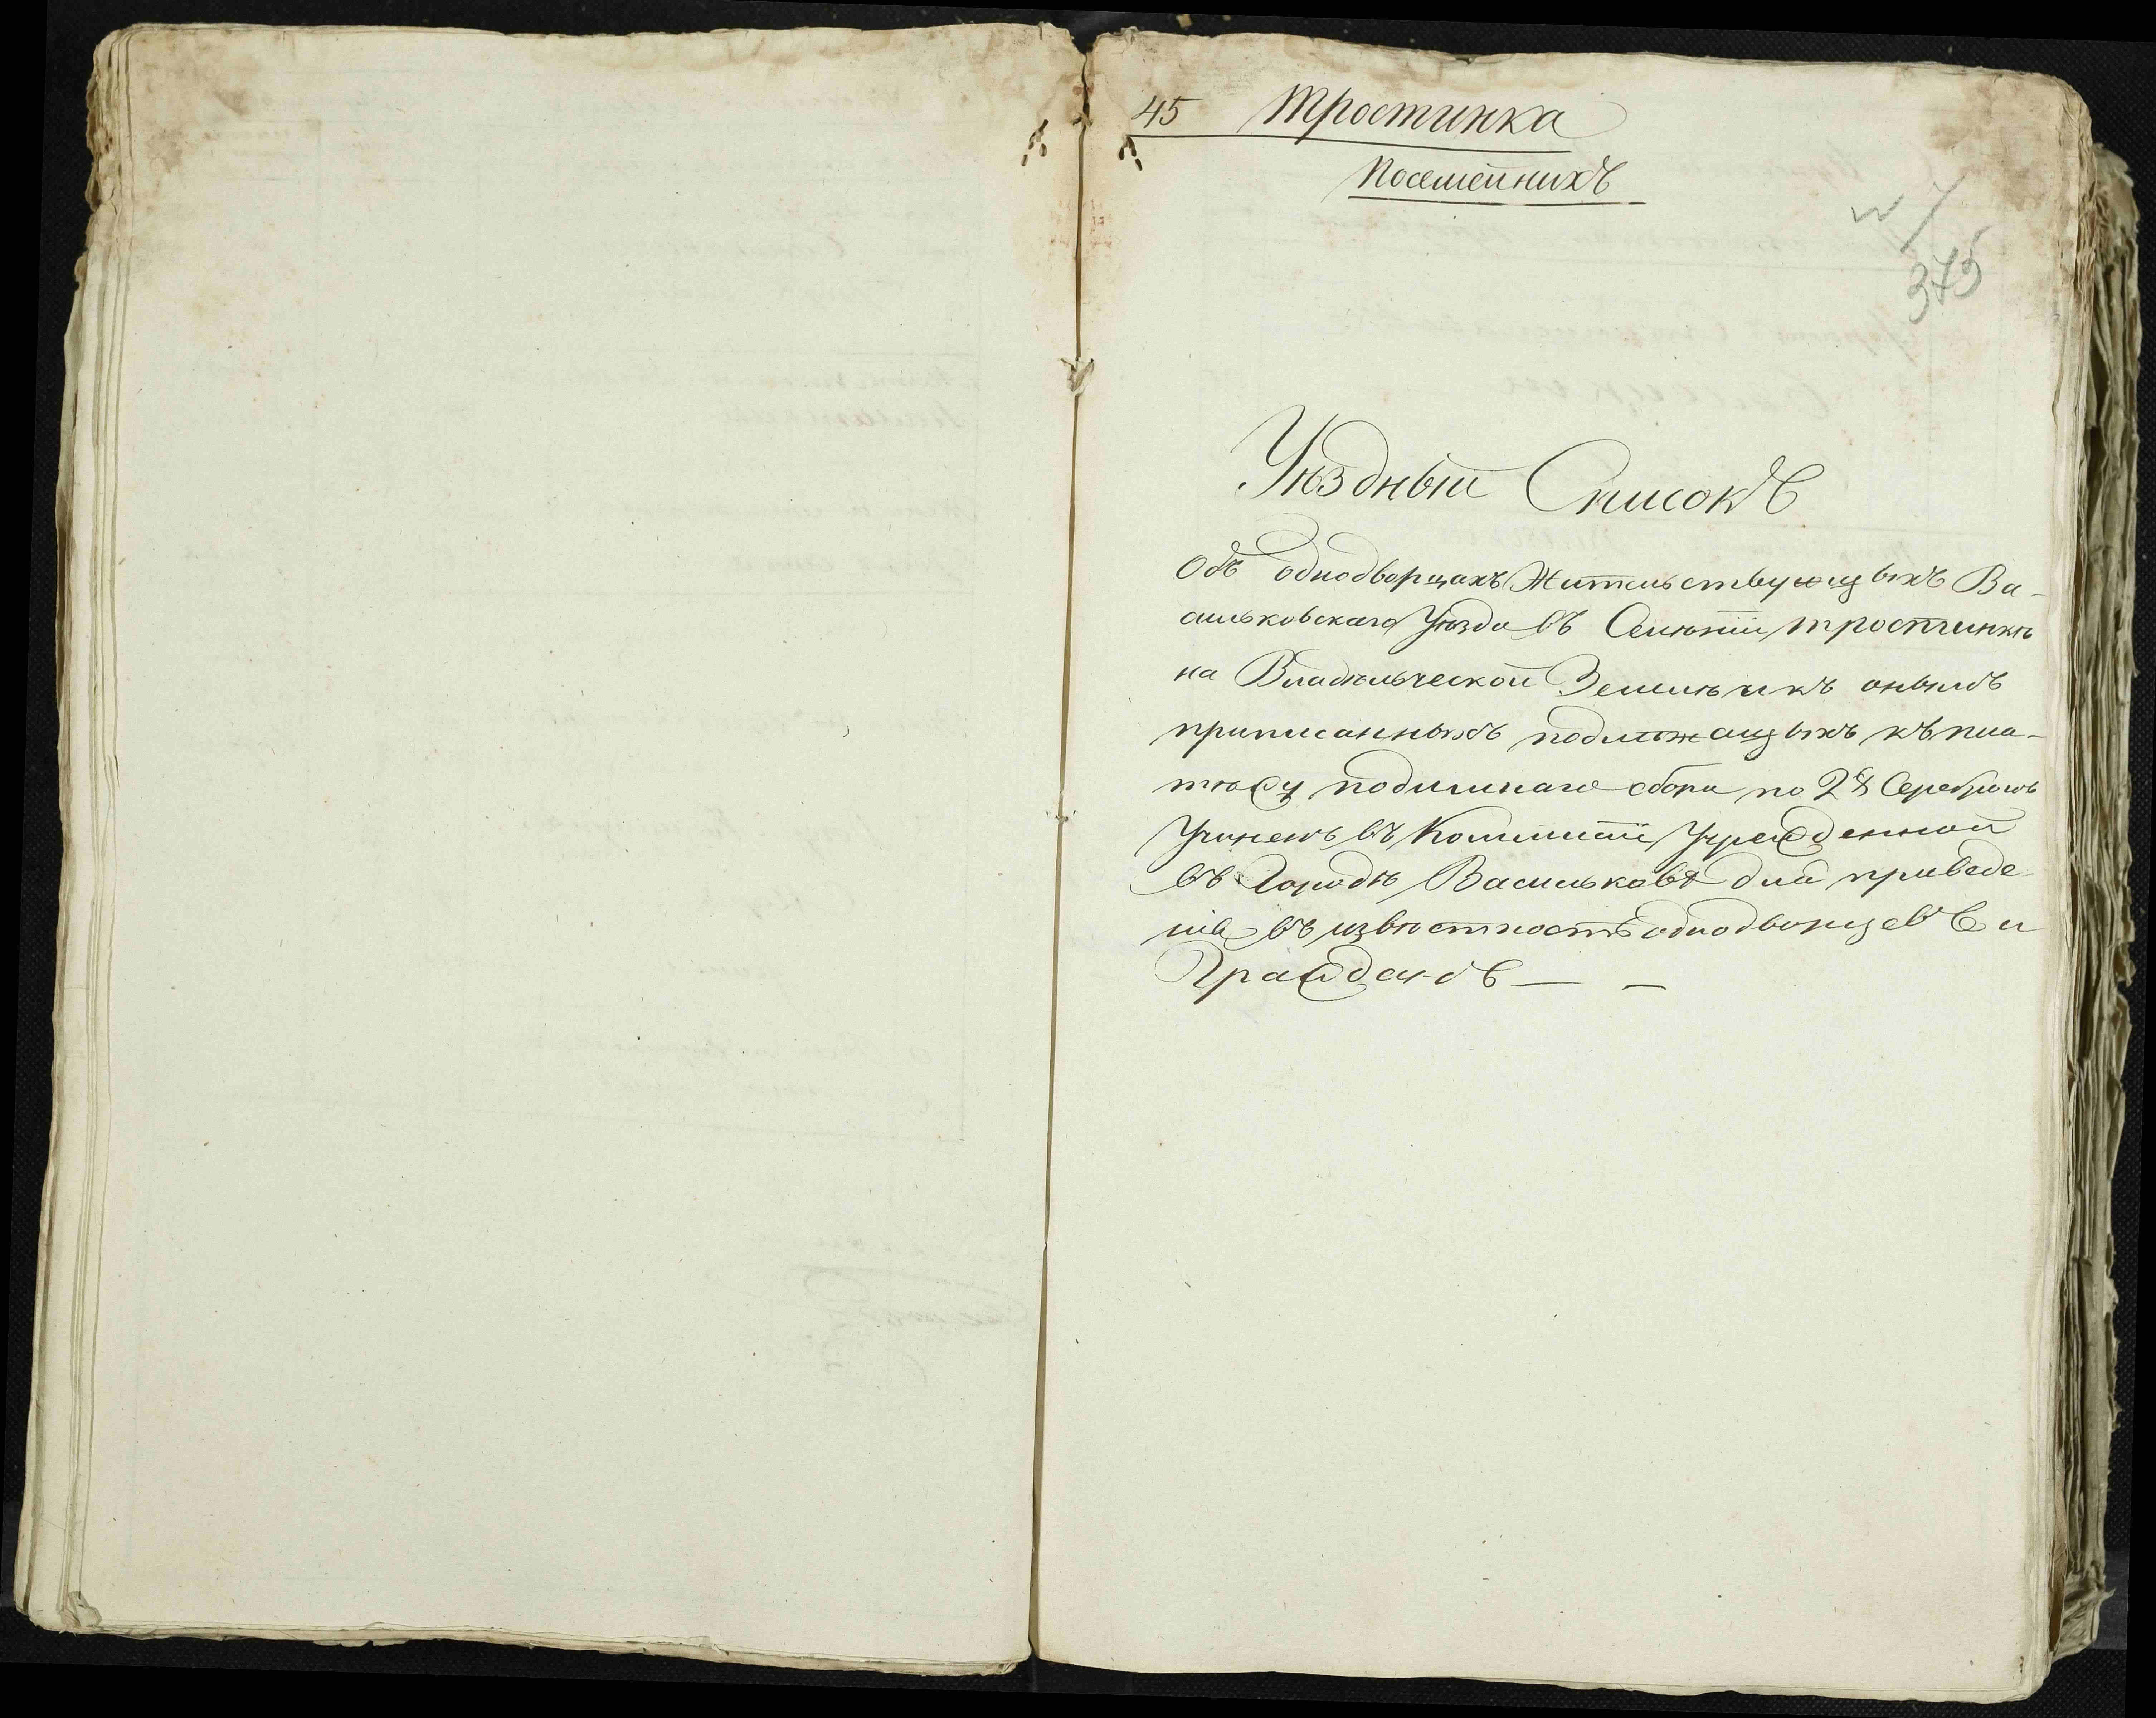 45 Тростинка
Посемейникъ
375
Уѣздный Списокъ
Объ однодворцахъ Жительствующыхъ Ва-
сильковскаго Уѣзда въ Селѣніи тростинкѣ
на Владѣльческой Землѣ и къ онымъ
приписанныхъ подлежащыхъ къ пла-
тежу подымнаго сбора по 2 Серебромъ
Учиненъ въ Коммисіи Учрежденной
въ Городѣ Васильковѣ для приведе
нія въ извѣстность однодворцевъ и
Гражданъ — —